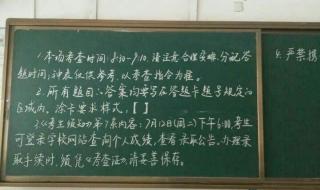 1.本场考查时间:8:10-9:10,请注意合理安排、分配答
题时间,钟表仅供参考,以考查指令为准。
2.所有题目的答案均要写在答题卡题号规定的
区域内,涂卡要求样式,【】
3.《考生须知》第7条内容:7月12日(周二)下午6:00,考生
可登录学校网站查询个人成绩,查看录取公告。办理录
取手续时,须凭《考查证》请妥善保存。
4.严禁携